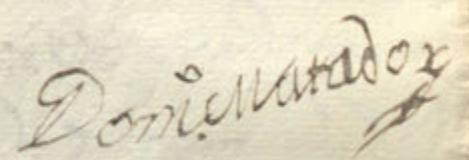 Domº Matador